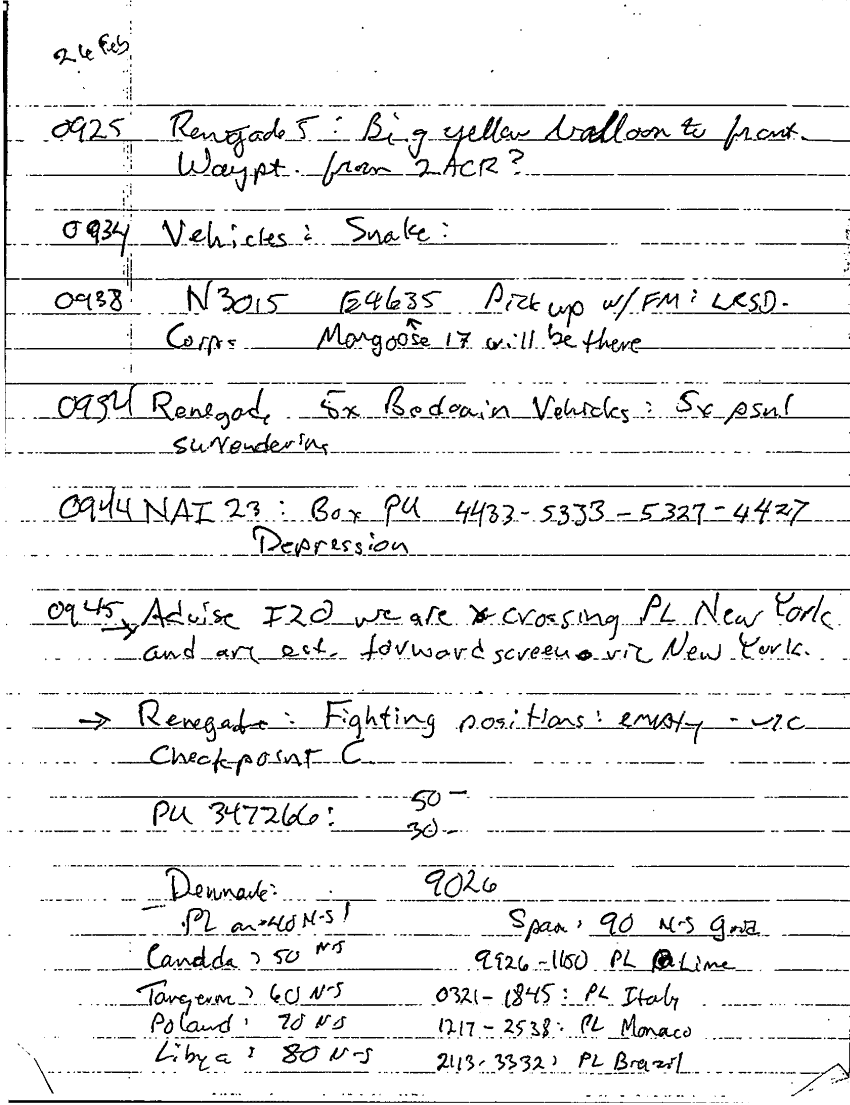 26 Feb
0925 Renegade 5: Big yellow balloon to front.
Waypt. from 2ACR?
0934 Vehicles: Snake:
0938 N3015 E4635 Pick up w/ FM: LRSD.
Corps Mongoose 17 will be there
0934 Renegade 5x Bedouin Vehicles: 5x psnl
surrendering
0944 NAI 23: Box PU 4433-5333-5327-4427
Depression
0945 Advise I20 we are crossing PL New York
→ and are est. forward screen vic New York.
→ Renegade: Fighting positions: empty - vic
Checkpoint C
PU 347266: 50 -
30 -
Denmark: 9026
PL on 40 N-S Spain: 90 N-S Grid
Canada: 50 N-S 9926-1150 PL Lime
60 N-S 0321-1845: PL Italy
Poland: 70 N-S 1217-2538: PL Monaco
Libya: 80 N-S 2113-3332: PL Brazil